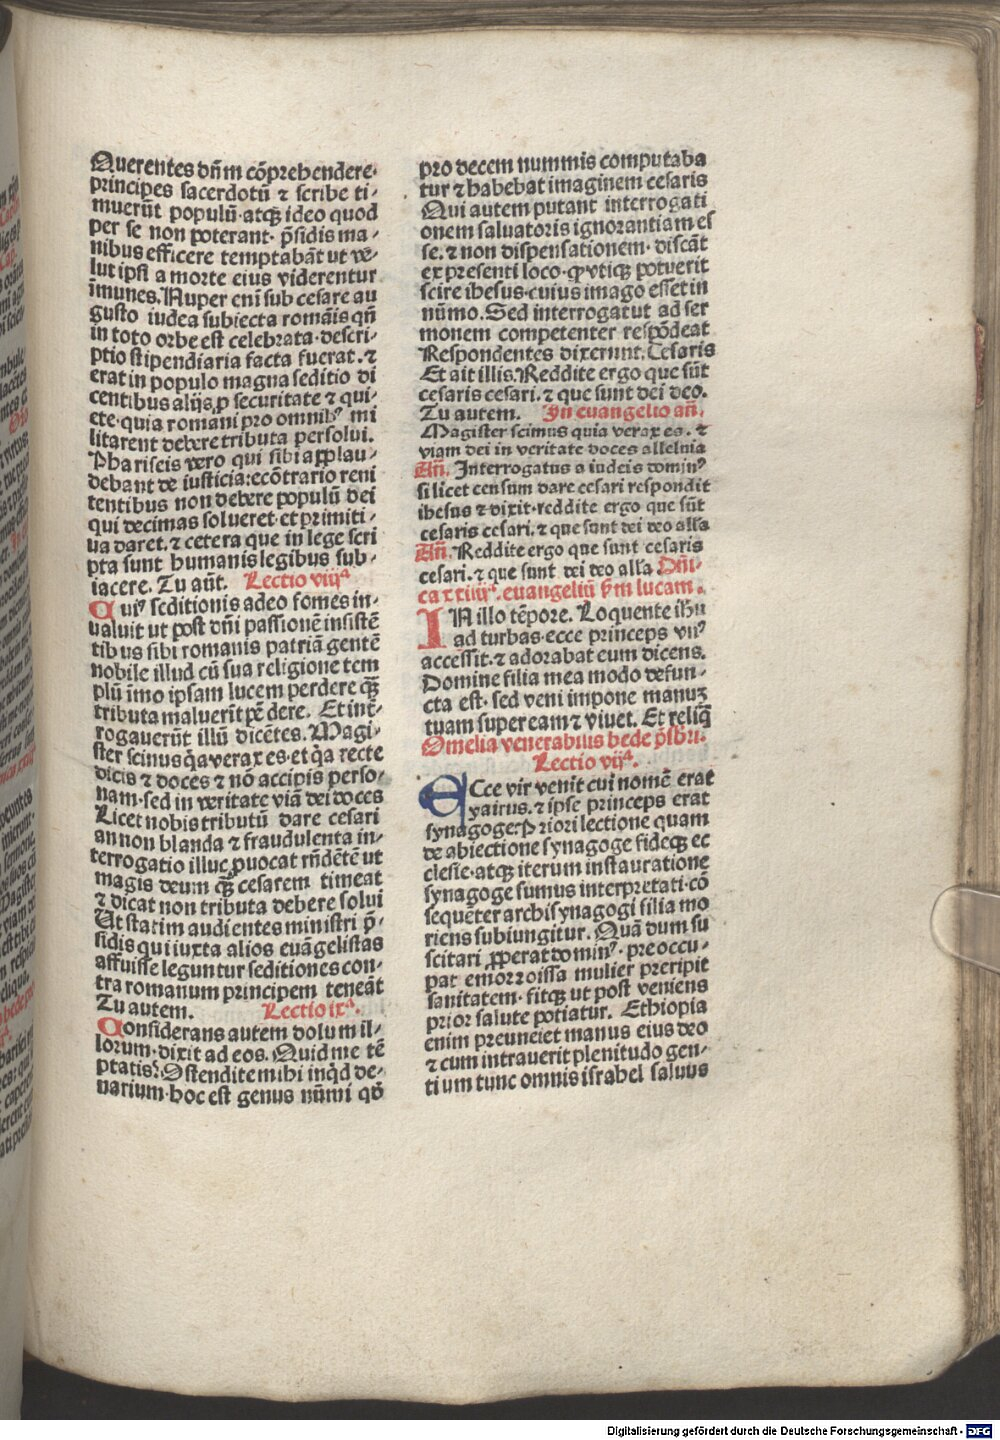 Querentes dn̄m cōprehendere·
principes sacerdotū ⁊ scribe ti⸗
muerūt populū·atqꝫ ideo quod
per se non poterant· p̄sidis ma⸗
nibus efficere temptabāt ut ve⸗
lut ipsi a morte eius viderentur
īmunes. Nuper enī sub cesare au
gusto iudea subiecta romāis qn̄
in toto orbe est celebrata·descri⸗
ptio stipendiaria facta fuerat. ⁊
erat in populo magna seditio di
centibus alijs, ꝓ securitate ⁊ qui⸗
ete·quia romani pro omnibꝰ mi
litarent debere tributa persolui.
Pharisei vero qui sibi applau⸗
debant de iusticia: ecōtrario reni
tentibus non debere populū dei
qui decimas solueret·et primiti⸗
ua daret. ⁊ cetera que in lege scri
pta sunt humanis legibus sub⸗
iacere. Tu aūt. Lectio viijᵃ
Cuiꝰ seditionis adeo fomes in⸗
ualuit ut post dn̄i passionē insistē
tibus sibi romanis patriā gentē
nobile illud cū sua religione tem
plū īmo ipsam lucem perdere qꝫ̄
tributa maluerīt pēdere. Et int̄⸗
rogauerūt illū dicētes. Magi⸗
ster scimus qa verax es·et qa recte
dicis ⁊ doces ⁊ nō accipis perso⸗
nam·sed in veritate viā dei doces
Licet nobis tributū dare cesari
an non blanda ⁊ fraudulenta in⸗
terrogatio illuc ꝓuocat rn̄dētē ut
magis deum qꝫ̄ cesarem timeat
⁊ dicat non tributa debere solui
Ut statim audientes ministri p̄⸗
sidis qui iuxta alios euāgelistas
affuisse leguntur seditiones con⸗
tra romanum principem teneāt
Tu autem. Lectio ixᵃ.
Considerans autem dolum il⸗
lorum·dixit ad eos. Quid me tē
ptatis? Ostendite mihi inqd de⸗
narium·hoc est genus nūmi qd̄
pro decem nummis computaba
tur ⁊ habebat imaginem cesaris
Qui autem putant interrogati
onem saluatoris ignorantiam es
se. ⁊ non dispensationem· discāt
ex presenti loco·qꝙ utiqꝫ potuerit
scire ihesus·cuius imago esset in
nūmo. Sed interrogatut ad ser
monem competenter respōdeat
Respondentes dixerunt. Cesaris
Et ait illis. Reddite ergo que sūt
cesaris cesari. ⁊ que sunt dei deo.
Tu autem. In euangelio an̄.
Magister scimus quia verax es. ⁊
viam dei in veritate doces alleluia
An̄. Interrogatus a iudeis dominꝰ
si licet censum dare cesari respondit
ihesus ⁊ dixit·reddite ergo que sūt
cesaris cesari. ⁊ que sunt dei deo alla
An̄. Reddite ergo que sunt cesaris
cesari. ⁊ que sunt dei deo alla. Dn̄i⸗
ca xxiiijᵃ. euangeliū s̄m lucam.
IN illo tēpore. Loquente ihu
ad turbas·ecce princeps vnꝰ
accessit. ⁊ adorabat eum dicens.
Domine filia mea modo defun⸗
cta est· sed veni impone manuꝫ
tuam super eam ⁊ viuet. Et reliq̄
Omelia venerabilis bede p̄sbri.
Lectio vijᵃ.
ECce vir venit cui nomē erat
yairus. ⁊ ipse princeps erat
synagoge: Priori lectione quam
de abiectione synagoge fideqꝫ ec
clesie·atqꝫ iterum instauratione
synagoge sumus interpretati·cō
sequēter archisynagogi filia mo
riens subiungitur. Quā dum su
scitari ꝓperat dominꝰ· preoccu⸗
pat emorroissa mulier preripit
sanitatem· fitqꝫ ut post veniens
prior salute potiatur. Ethiopia
enim preueniet manus eius deo
⁊ cum intrauerit plenitudo gen⸗
tium tunc omnis israhel saluus
Digitalisierung gefördert durch die Deutsche Forschungsgemeinschaft - DFG